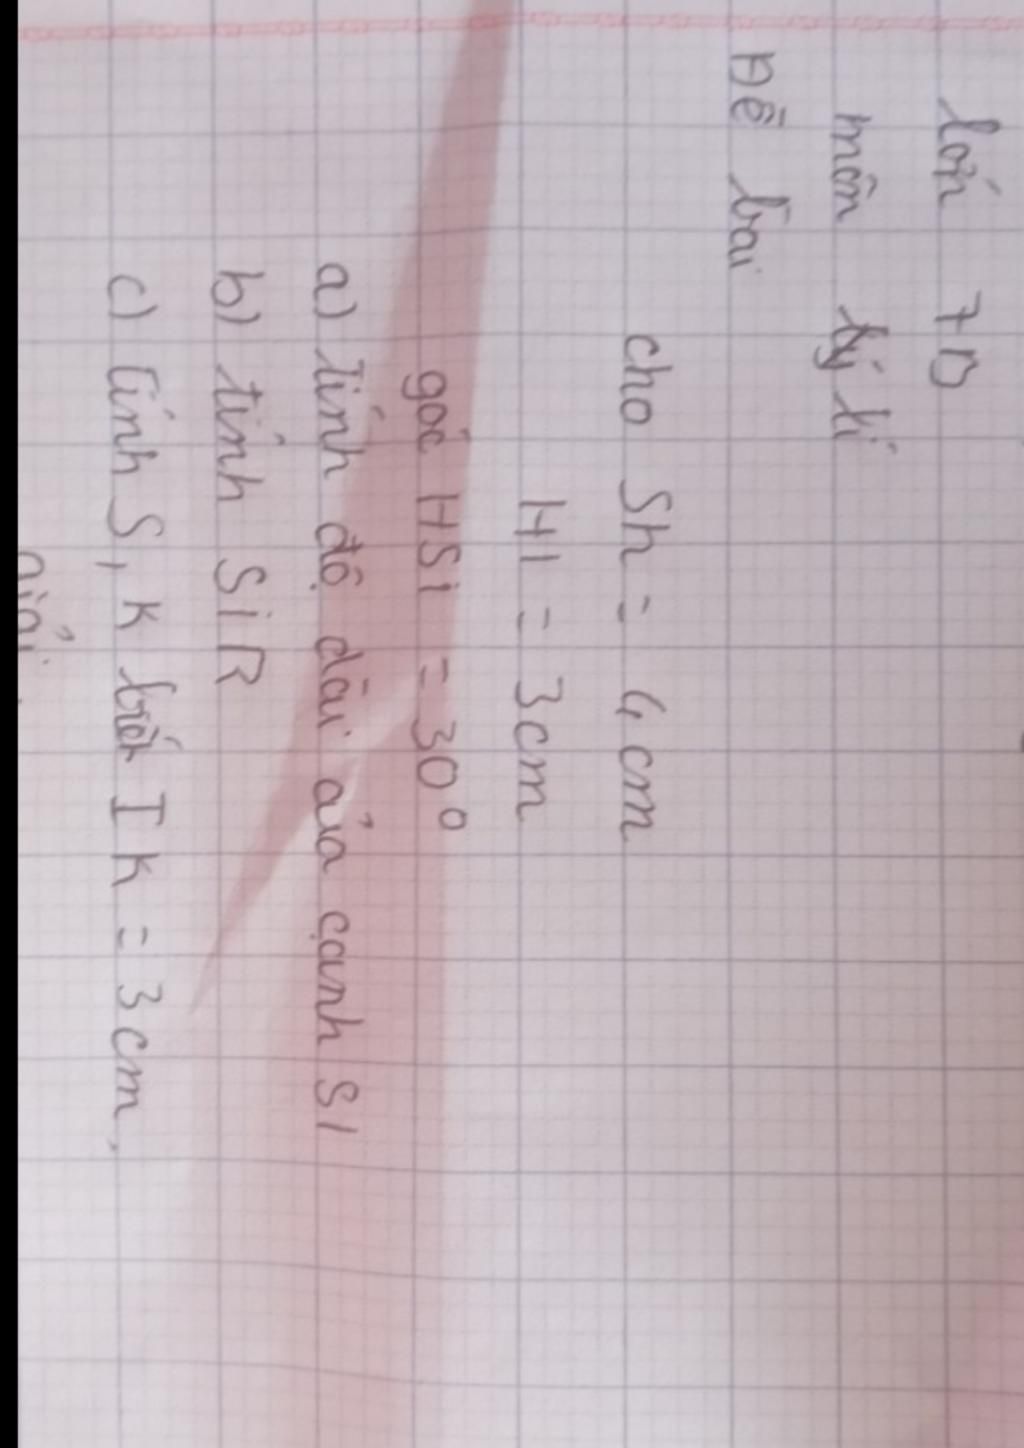 lớp 7D
môn lý lí
Đề bài
cho Sh = 4cm
HI = 3cm
góc HSi = 30°
a) tính độ dài của cạnh SI
b) tính SiR
c) tính S, K biết IK = 3cm.
giải